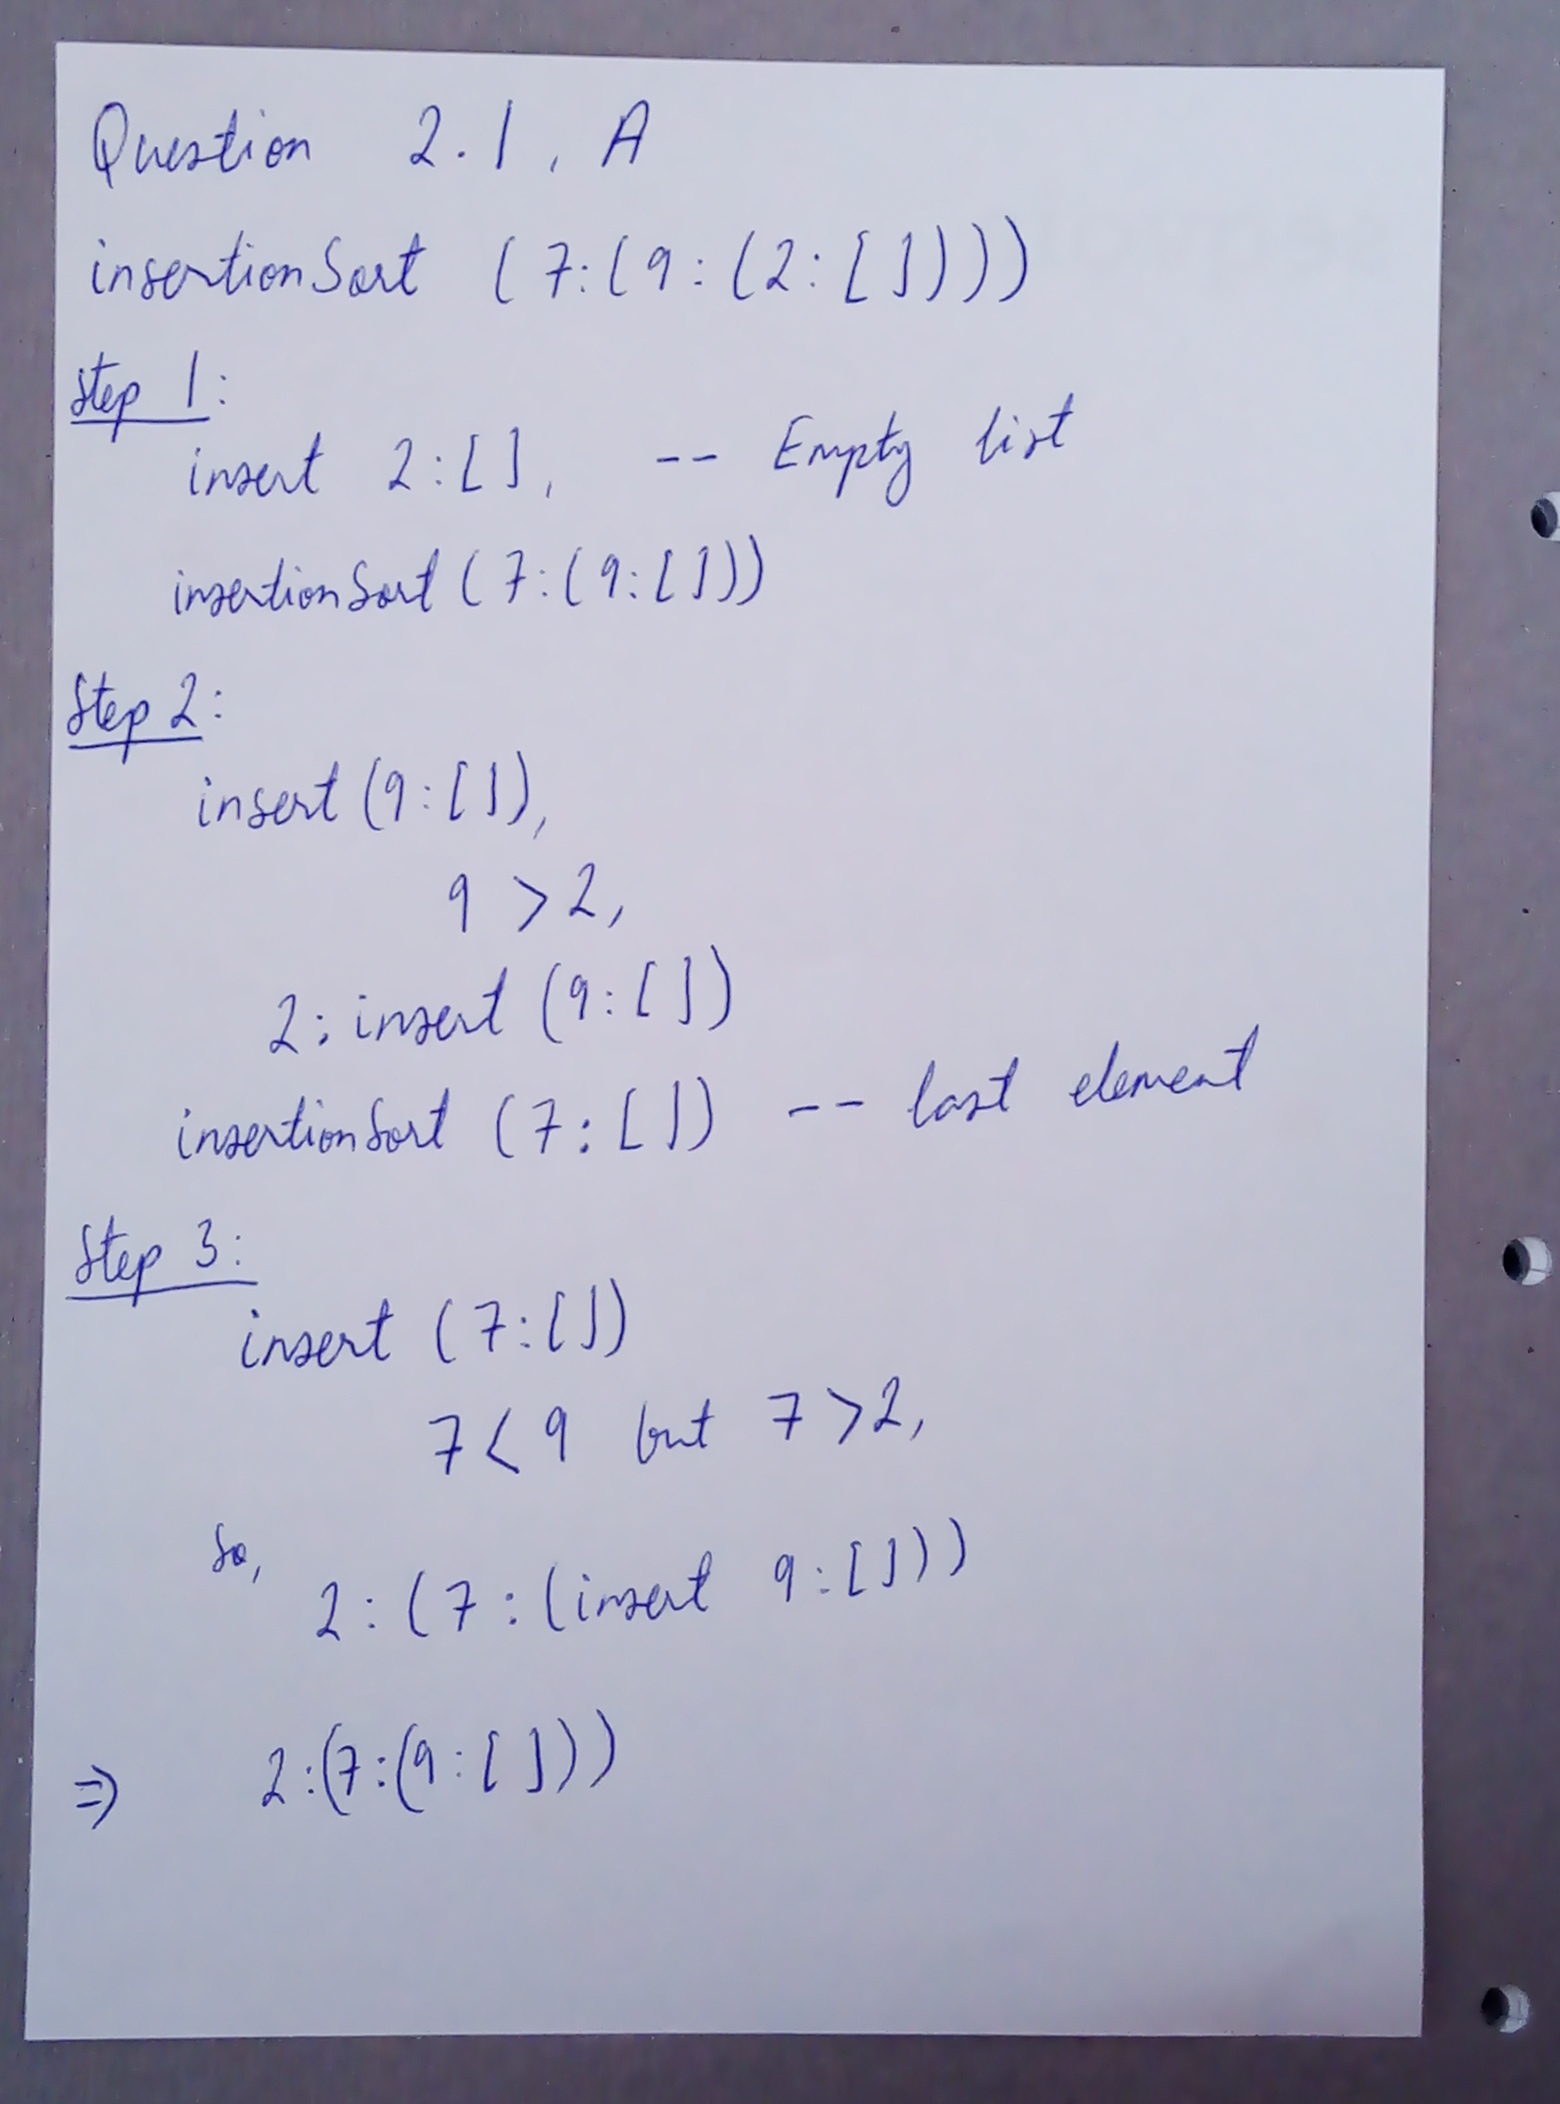 Question 2.1, A
insertionSort (7:(9:(2:[])))
Step 1:
insert 2:[], -- Empty list
insertionSort (7:(9:[]))
Step 2:
insert (9:[]),
9 > 2,
2: insert (9:[])
insertionSort (7:[]) -- last element
Step 3:
insert (7:[])
7 < 9 but 7 > 2,
So,
2:(7:(insert 9:[]))
⇒ 2:(7:(9:[]))